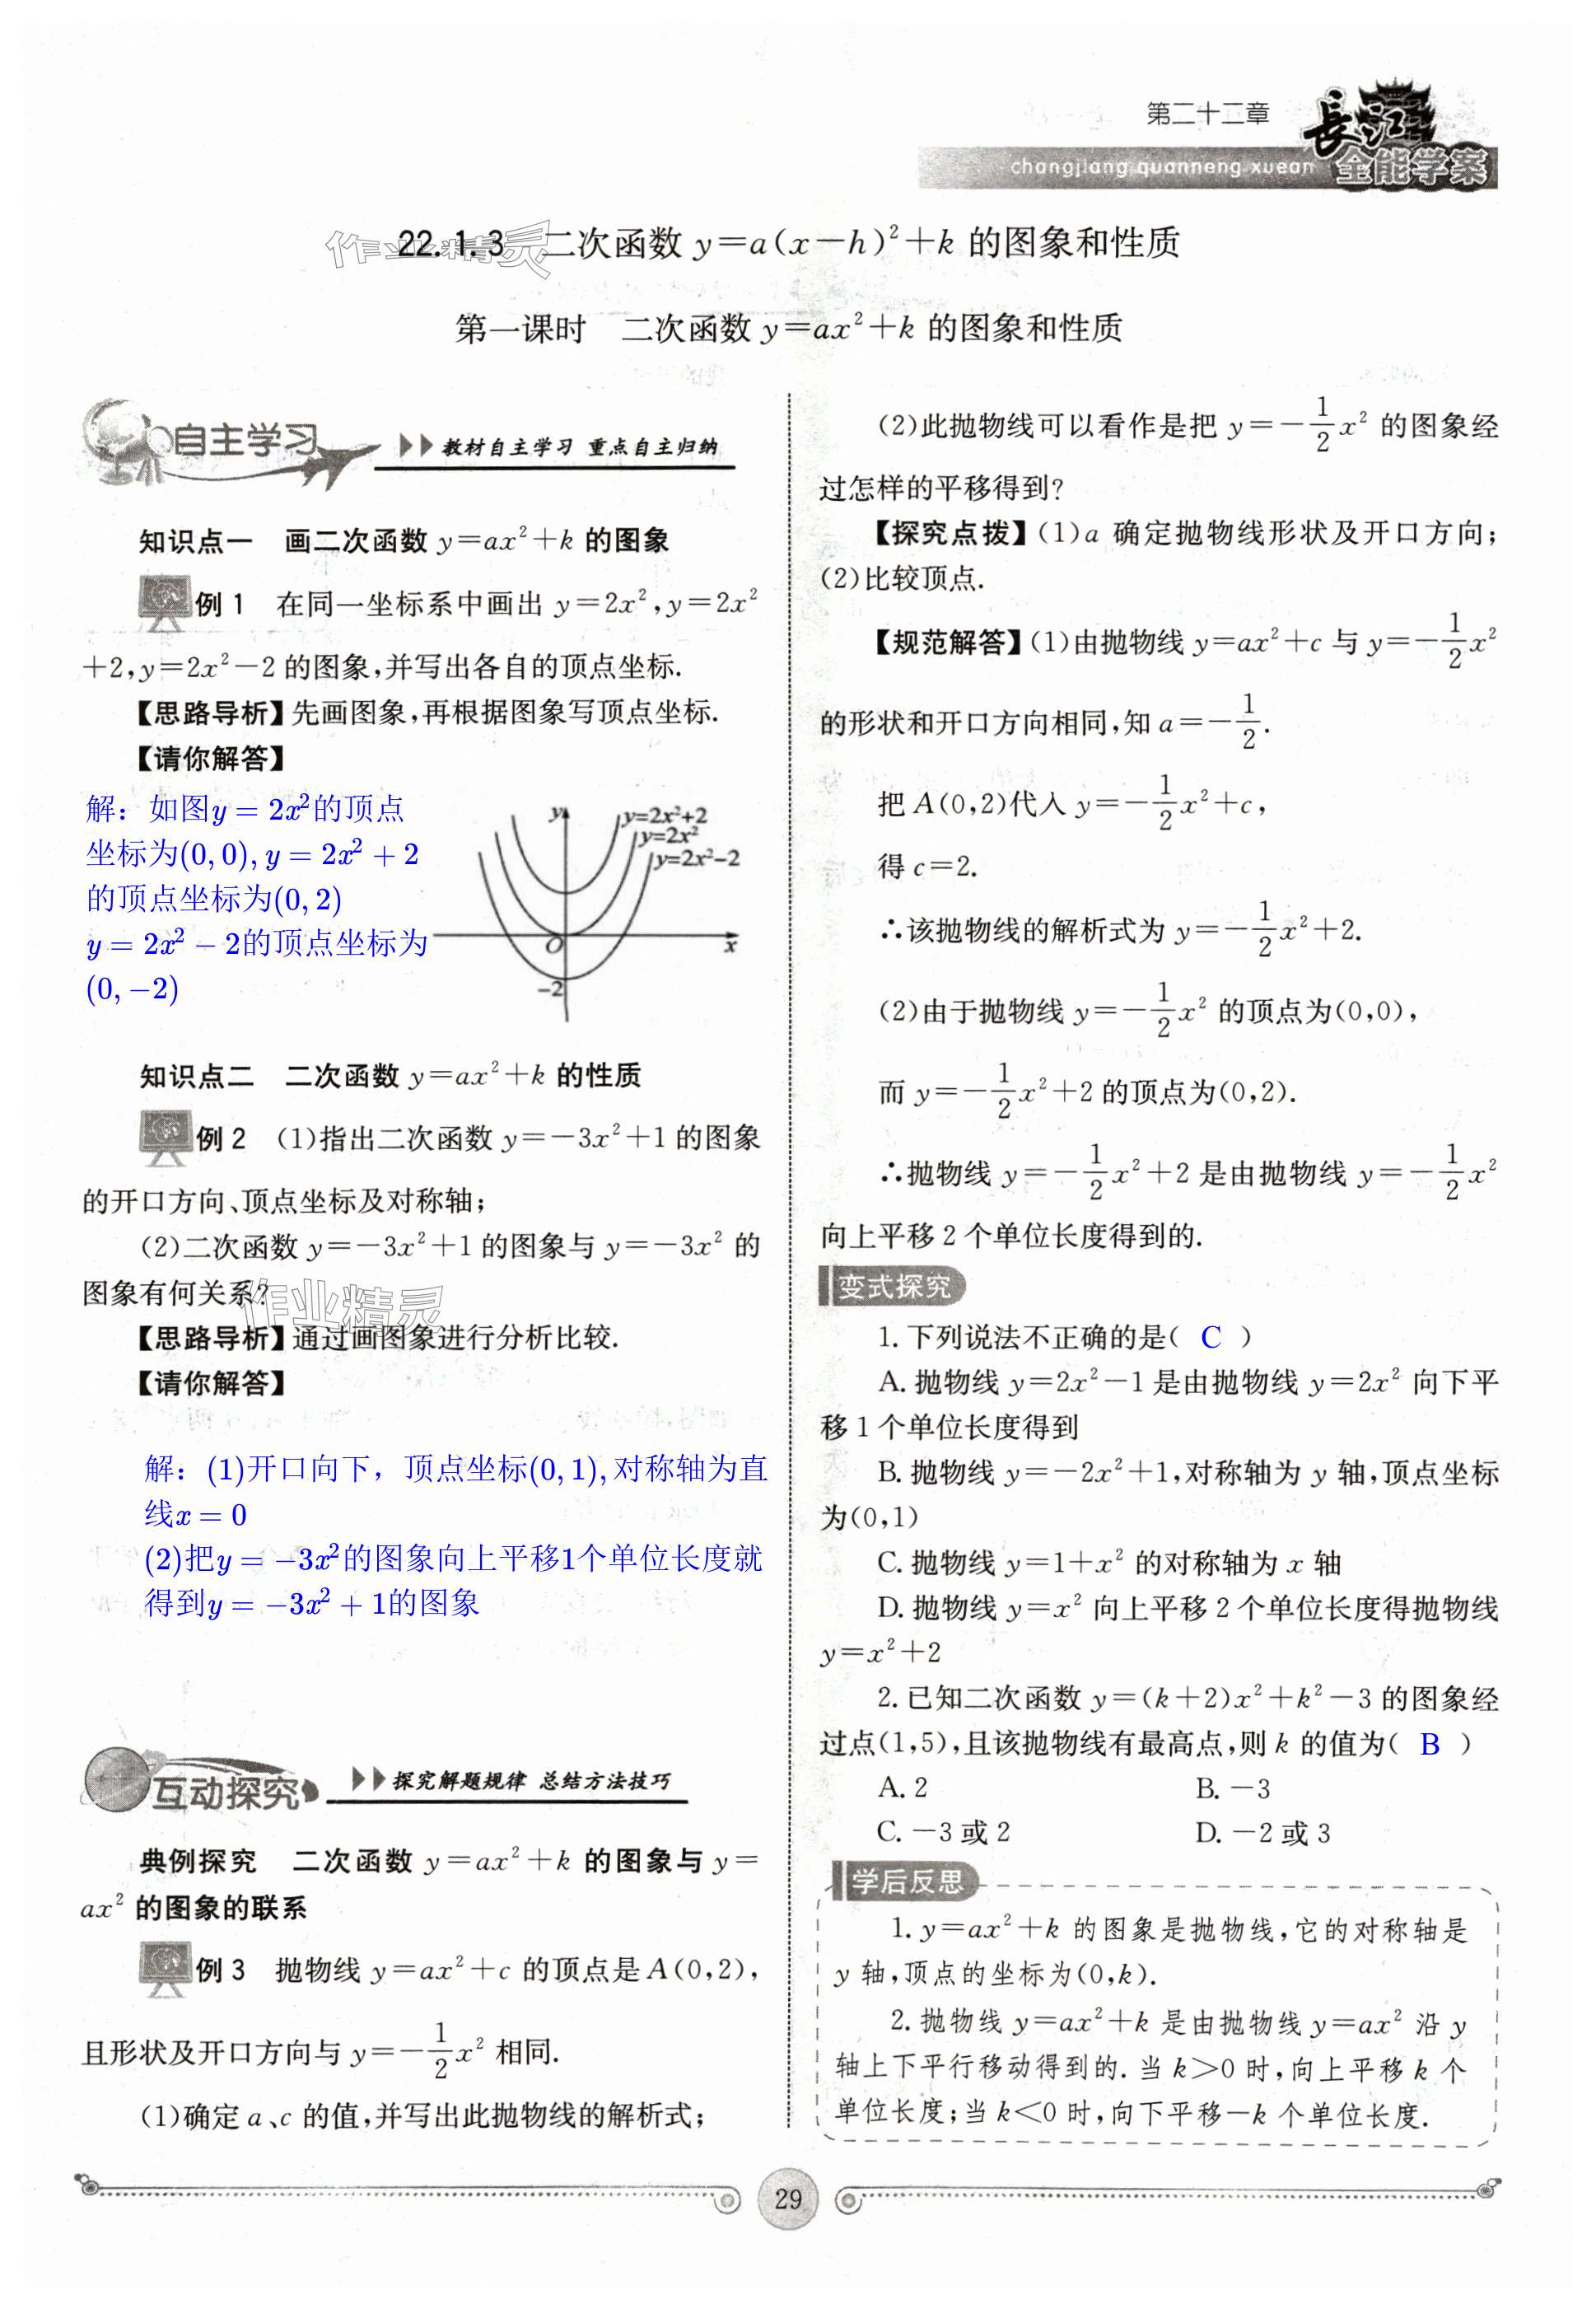 第二十二章
長江
changjiang quanneng xuean 全能学案
22.1.3 二次函数 y=a(x-h)²+k 的图象和性质
作业精灵
第一课时 二次函数 y=ax²+k 的图象和性质
自主学习 教材自主学习 重点自主归纳
知识点一 画二次函数 y=ax²+k 的图象
例1 在同一坐标系中画出 y=2x²,y=2x²
+2,y=2x²-2 的图象,并写出各自的顶点坐标.
【思路导析】先画图象,再根据图象写顶点坐标.
【请你解答】
解：如图y = 2x²的顶点
坐标为(0, 0), y = 2x² + 2
的顶点坐标为(0, 2)
y = 2x² − 2的顶点坐标为
(0, −2)
y
y=2x²+2
y=2x²
y=2x²-2
O
x
-2
知识点二 二次函数 y=ax²+k 的性质
例2 (1)指出二次函数 y=-3x²+1 的图象
的开口方向、顶点坐标及对称轴;
(2)二次函数 y=-3x²+1 的图象与 y=-3x² 的
图象有何关系?
作业精灵
【思路导析】通过画图象进行分析比较.
【请你解答】
解：(1)开口向下，顶点坐标(0, 1), 对称轴为直
线x = 0
(2)把y = −3x²的图象向上平移1个单位长度就
得到y = −3x² + 1的图象
互动探究 探究解题规律 总结方法技巧
典例探究 二次函数 y=ax²+k 的图象与 y=
ax² 的图象的联系
例3 抛物线 y=ax²+c 的顶点是 A(0,2),
且形状及开口方向与 y=-1/2x² 相同.
(1)确定 a、c 的值,并写出此抛物线的解析式;
(2)此抛物线可以看作是把 y=-1/2x² 的图象经
过怎样的平移得到?
【探究点拨】(1)a 确定抛物线形状及开口方向;
(2)比较顶点.
【规范解答】(1)由抛物线 y=ax²+c 与 y=-1/2x²
的形状和开口方向相同,知 a=-1/2.
把 A(0,2)代入 y=-1/2x²+c,
得 c=2.
∴该抛物线的解析式为 y=-1/2x²+2.
(2)由于抛物线 y=-1/2x² 的顶点为(0,0),
而 y=-1/2x²+2 的顶点为(0,2).
∴抛物线 y=-1/2x²+2 是由抛物线 y=-1/2x²
向上平移 2 个单位长度得到的.
变式探究
1.下列说法不正确的是( C )
A.抛物线 y=2x²-1 是由抛物线 y=2x² 向下平
移 1 个单位长度得到
B.抛物线 y=-2x²+1,对称轴为 y 轴,顶点坐标
为(0,1)
C.抛物线 y=1+x² 的对称轴为 x 轴
D.抛物线 y=x² 向上平移 2 个单位长度得抛物线
y=x²+2
2.已知二次函数 y=(k+2)x²+k²-3 的图象经
过点(1,5),且该抛物线有最高点,则 k 的值为( B )
A. 2 B. -3
C. -3 或 2 D. -2 或 3
学后反思
1. y=ax²+k 的图象是抛物线,它的对称轴是
y 轴,顶点的坐标为(0,k).
2.抛物线 y=ax²+k 是由抛物线 y=ax² 沿 y
轴上下平行移动得到的.当 k>0 时,向上平移 k 个
单位长度;当 k<0 时,向下平移-k 个单位长度.
29